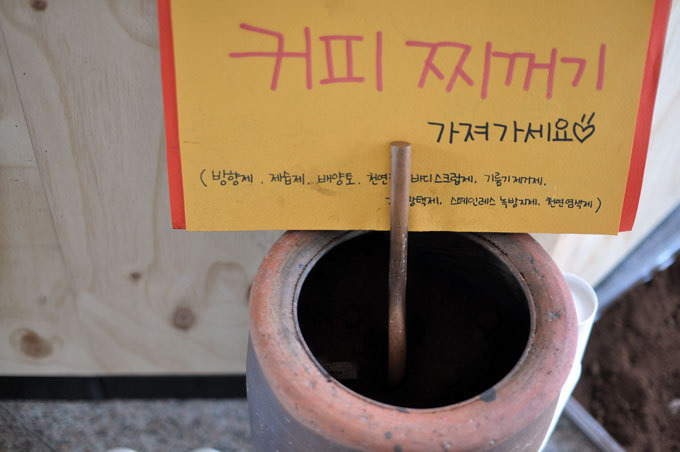 커피 찌꺼기
가져가세요
(방향제. 제습제. 배양토. 바디스크럽제. 기름기제거제.
스테인레스 녹방지제. 천연염색제)